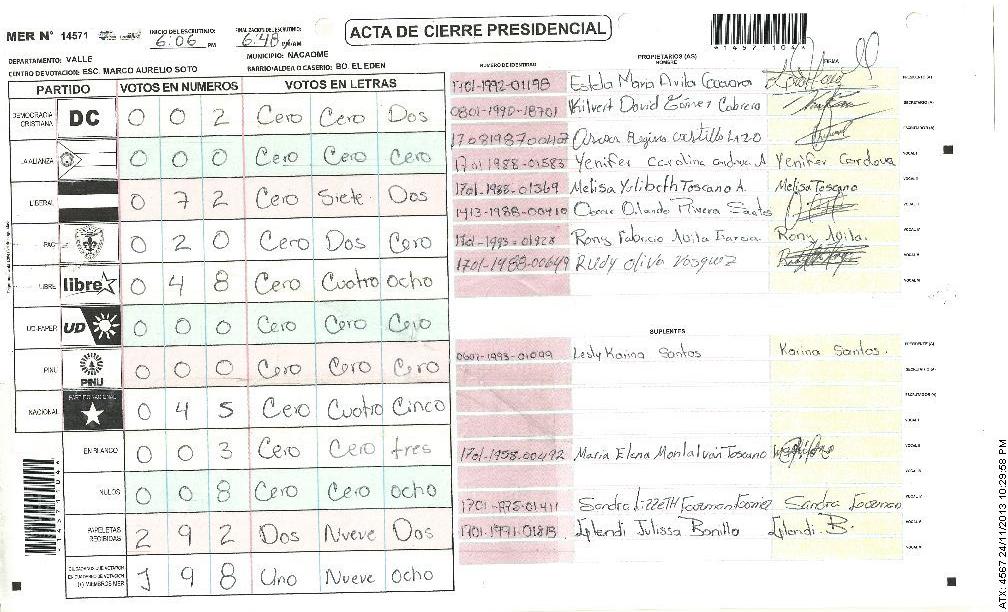 MER N° 14571
INICIO DEL ESCRUTINIO: 6:06 PM
FINALIZACION DEL ESCRUTINIO: 6:48 PM/AM
ACTA DE CIERRE PRESIDENCIAL
*14571104*
DEPARTAMENTO: VALLE
MUNICIPIO: NACAOME
CENTRO DE VOTACION: ESC. MARCO AURELIO SOTO
BARRIO/ALDEA O CASERIO: BO. EL EDEN
PARTIDO VOTOS EN NUMEROS VOTOS EN LETRAS
DEMOCRACIA CRISTIANA DC 0 0 2 Cero Cero Dos
LA ALIANZA 0 0 0 Cero Cero Cero
LIBERAL 0 7 2 Cero Siete Dos
PAC 0 2 0 Cero Dos Cero
LIBRE libre 0 4 8 Cero Cuatro ocho
UD-FAPER UD 0 0 0 Cero Cero Cero
PINU PINU 0 0 0 Cero Cero Cero
NACIONAL PARTIDO NACIONAL 0 4 5 Cero Cuatro Cinco
EN BLANCO 0 0 3 Cero Cero tres
NULOS 0 0 8 Cero Cero ocho
PAPELETAS RECIBIDAS 2 9 2 Dos Nueve Dos
CIUDADANOS QUE VOTARON EN CUADERNO DE VOTACION (+) MIEMBROS MER 1 9 8 Uno Nueve ocho
*14571104*
NUMERO DE IDENTIDAD
PROPIETARIOS (AS)
NOMBRE
FIRMA
1701-1992-01198 Estela Maria Avila PRESIDENTE (A)
0801-1990-18701 Kilvert David Gomez Cabrera SECRETARIO (A)
1708198700407 Regina Castillo Lazo ESCRUTADOR (A)
1701-1988-01583 Yenifer Carolina Yenifer Cordova VOCAL I
1701-1988-01369 Melisa Yolibeth Toscano A. Melisa Toscano VOCAL II
1413-1988-00410 Oscar Orlando Rivera Santos VOCAL III
1701-1993-01928 Rony Fabricio Avila Garcia Rony Avila. VOCAL IV
1701-1988-00649 Rudy Oliva Vasquez VOCAL V
VOCAL VI
SUPLENTES
0607-1993-01099 Lesly Karina Santos Karina Santos. PRESIDENTE (A)
SECRETARIO (A)
ESCRUTADOR (A)
VOCAL I
1701-1958-00492 Maria Elena Montalvan Toscano VOCAL II
VOCAL III
1701-1975-01411 Sandra Lizzeth Sandra VOCAL IV
1701-1991-01813 Glendi Julissa Bonilla Glendi B. VOCAL V
VOCAL VI
ATX: 4567 24/11/2013 10:29:58 PM